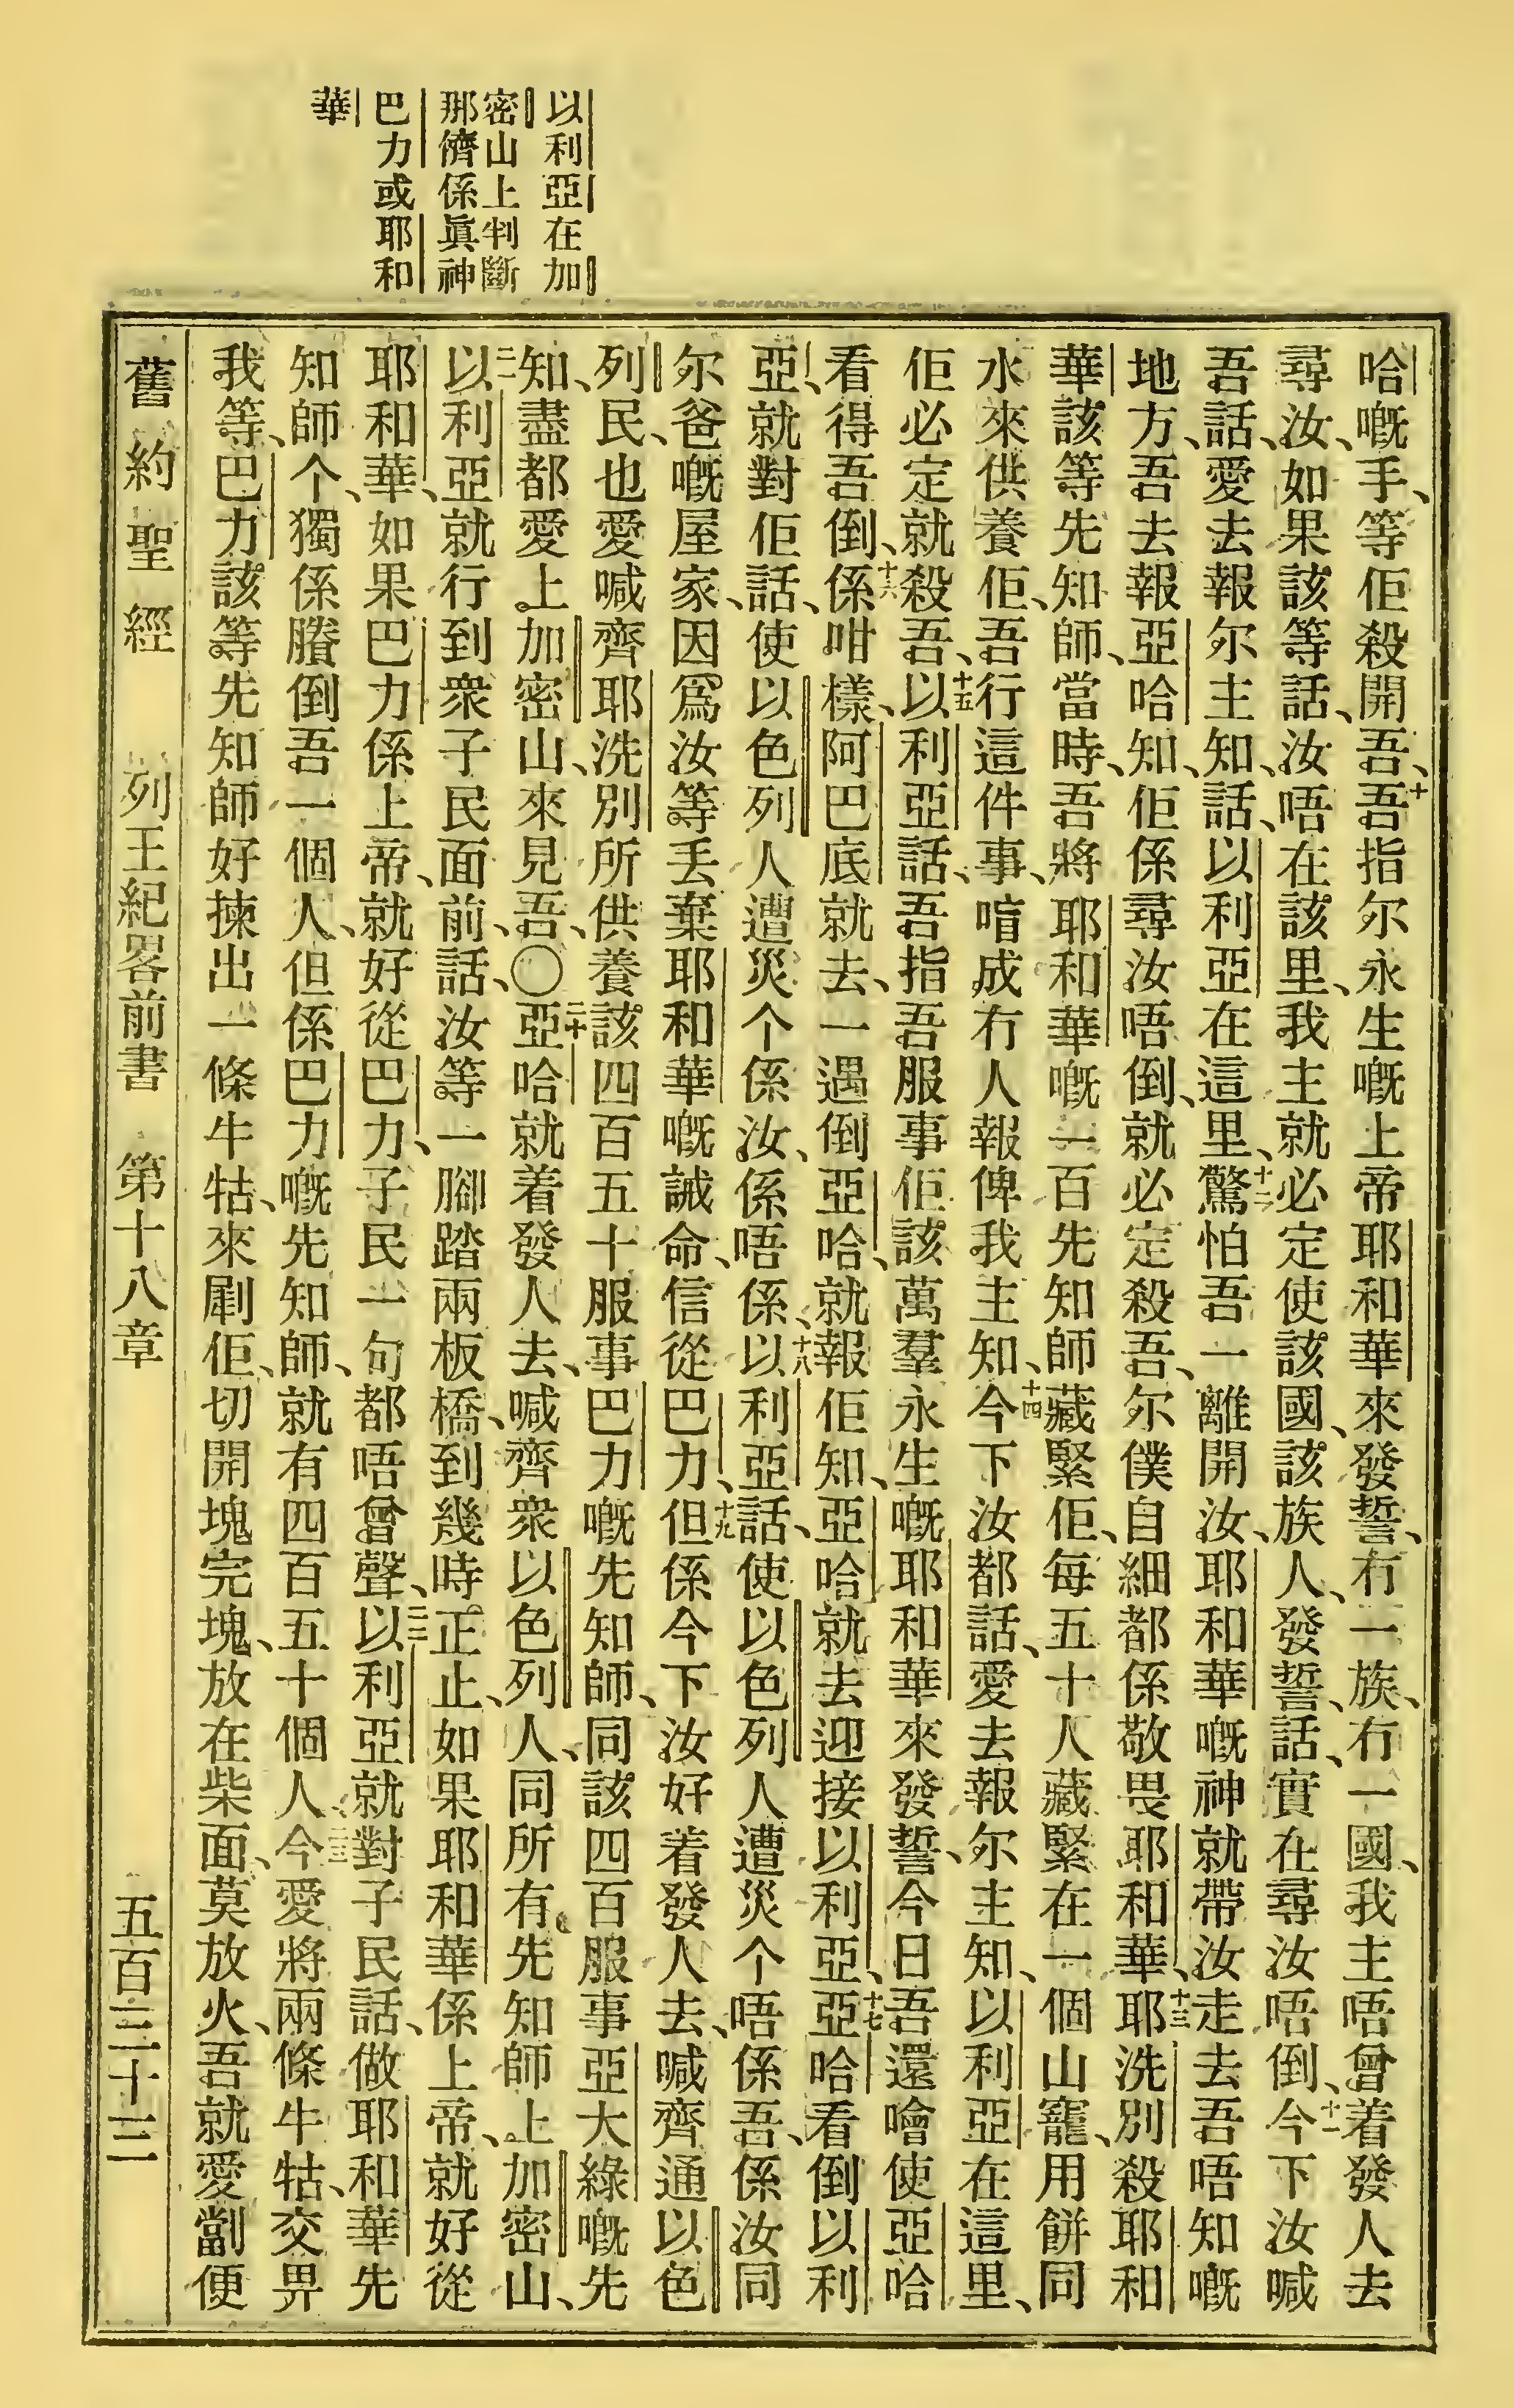 以利亞在加
密山上判斷
那儕係眞神
巴力或耶和
華
哈嘅手、等佢殺開吾、十吾指尔永生嘅上帝耶和華來發誓、冇一族、冇一國、我主唔曾着發人去
尋汝、如果該等話、汝唔在該里、我主就必定使該國、該族人、發誓、話、實在尋汝唔倒、十一今下汝喊
吾話、愛去報尔主知、話、以利亞在這里、十二驚怕吾一離開汝、耶和華嘅神就帶汝走去吾唔知嘅
地方、吾去報亞哈知、佢係尋汝唔倒、就必定殺吾、尔僕自細都係敬畏耶和華、十三耶洗別殺耶和
華該等先知師、當時、吾將耶和華嘅一百先知師藏緊佢、每五十人藏緊在一個山寵、用餅同
水來供養佢、吾行這件事、喑成冇人報俾我主知、十四今下汝都話、愛去報尔主知、以利亞在這里、
佢必定就殺吾、十五以利亞話、吾指吾服事佢該萬羣永生嘅耶和華來發誓、今日吾還噲使亞哈
看得吾倒、十六係咁樣、阿巴底就去、一遇倒亞哈、就報佢知、亞哈就去迎接以利亞、十七亞哈看倒以利
亞、就對佢話、使以色列人遭災个係汝、係唔係、十八以利亞話、使以色列人遭災个唔係吾、係汝同
尔爸嘅屋家、因爲汝等丢棄耶和華嘅誡命、信從巴力、十九但係今下汝好着發人去、喊齊通以色
列民、也愛喊齊耶洗別所供養該四百五十服事巴力嘅先知師、同該四百服事亞大綠嘅先
知、盡都愛上加密山、來見吾、〇二十亞哈就着發人去、喊齊衆以色列人、同所有先知師上加密山、
二一以利亞就行到衆子民面前、話、汝等一腳踏兩板橋、到幾時正止、如果耶和華係上帝、就好從
耶和華、如果巴力係上帝、就好從巴力、子民一句都唔曾聲、二二以利亞就對子民話、做耶和華先
知師个、獨係賸倒吾一個人、但係巴力嘅先知師、就有四百五十個人、二三今愛將兩條牛牯、交畀
我等、巴力該等先知師好揀出一條牛牯、來㓥佢、切開塊完塊、放在柴面、莫放火、吾就愛劏便
舊約聖經 列王紀畧前書 第十八章 五百三十三